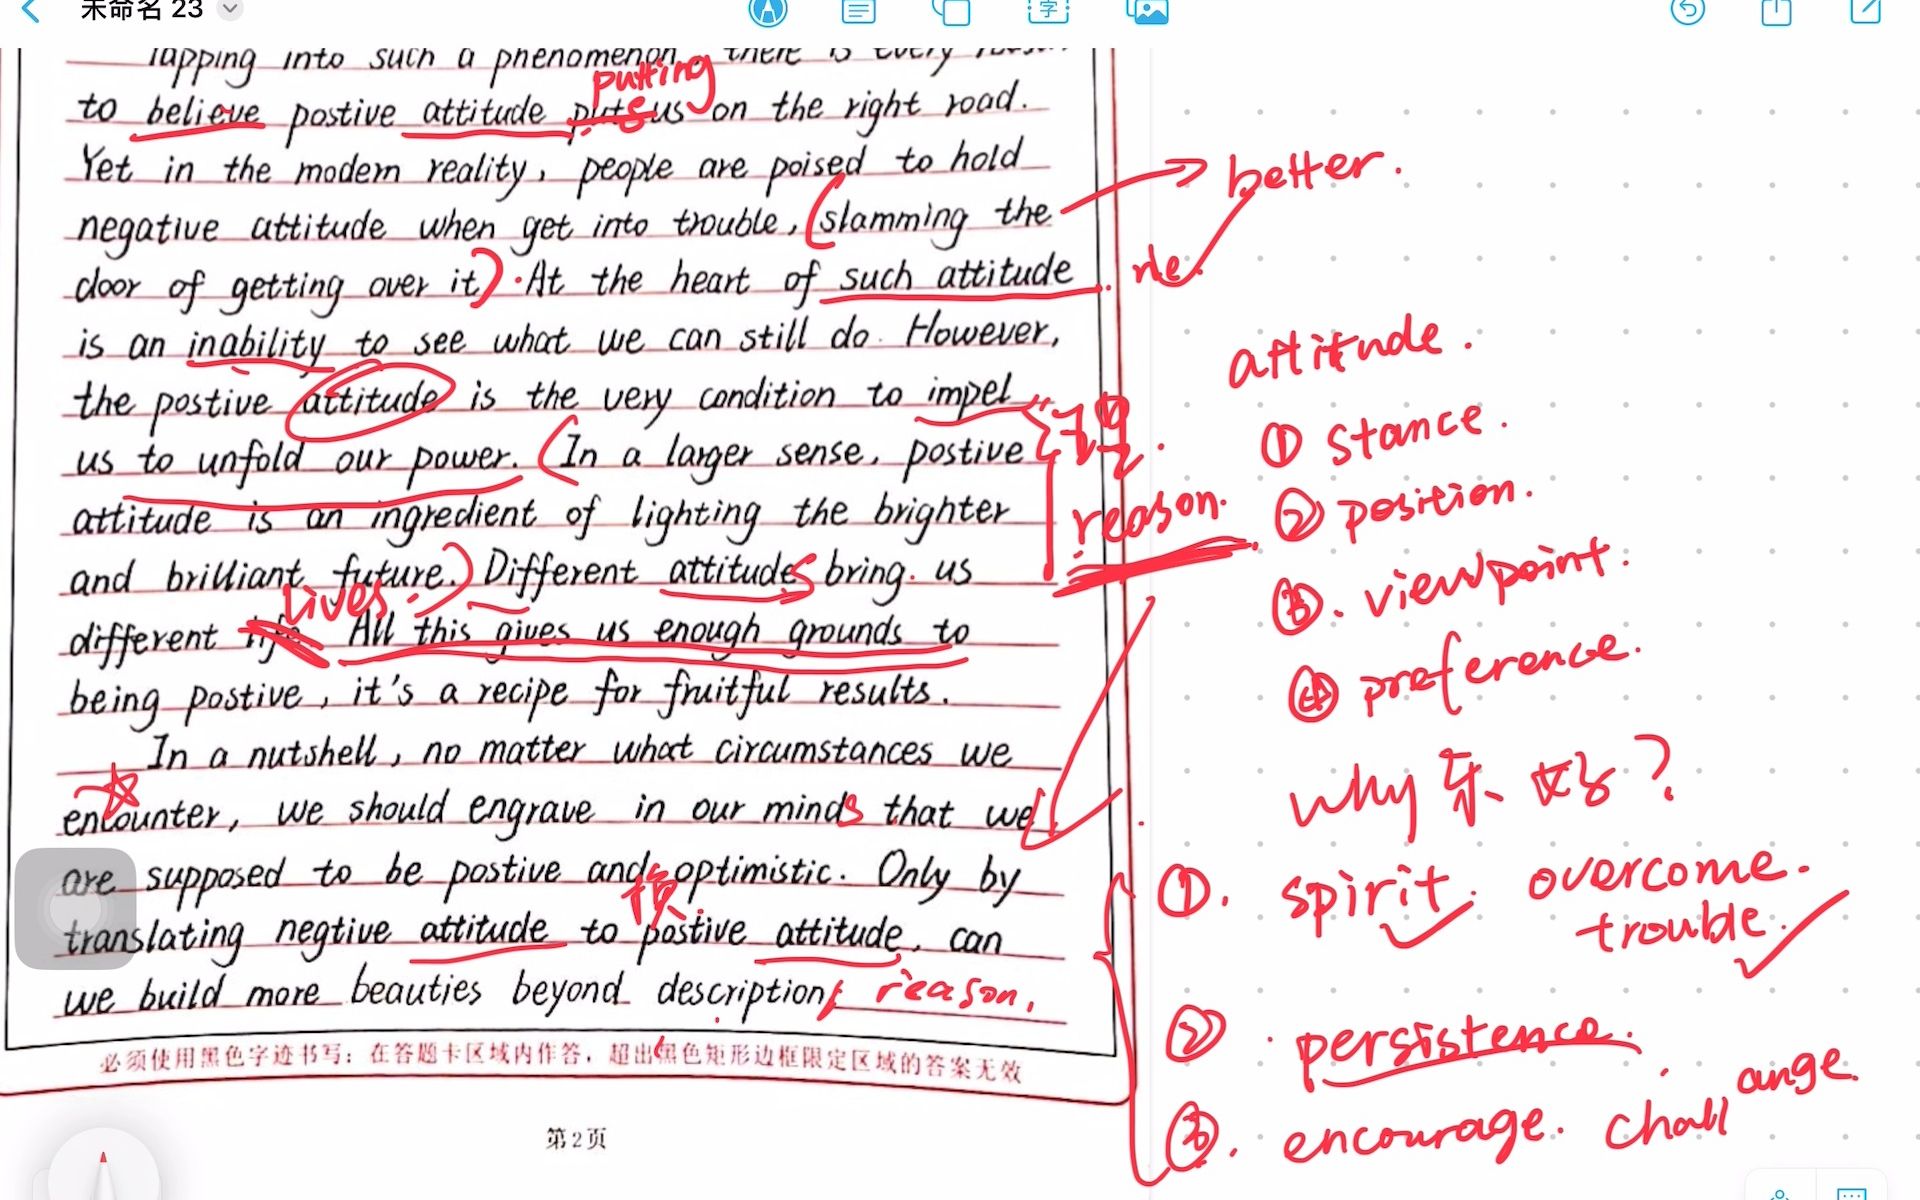 未命名 23
Tapping into such a phenomenon, there is every
putting
to believe postive attitude puts us on the right road.
Yet in the modern reality, people are poised to hold
better.
negative attitude when get into trouble, (slamming the
door of getting over it). At the heart of such attitude
is an inability to see what we can still do. However,
attitude.
the postive attitude is the very condition to impel
① stance.
us to unfold our power. (In a larger sense, postive
② position.
reason.
attitude is an ingredient of lighting the brighter
and brilliant future.) Different attitudes bring us
③. viewpoint.
lives.
different life All this gives us enough grounds to
④ preference.
being postive, it's a recipe for fruitful results.
In a nutshell, no matter what circumstances we
why 好?
encounter, we should engrave in our minds that we
are supposed to be postive and optimistic. Only by
①. spirit. overcome.
trouble.
换
translating negtive attitude to postive attitude, can
we build more beauties beyond description, reason.
② persistence.
必须使用黑色字迹书写：在答题卡区域内作答，超出黑色矩形边框限定区域的答案无效
③. encourage. challange
第2页